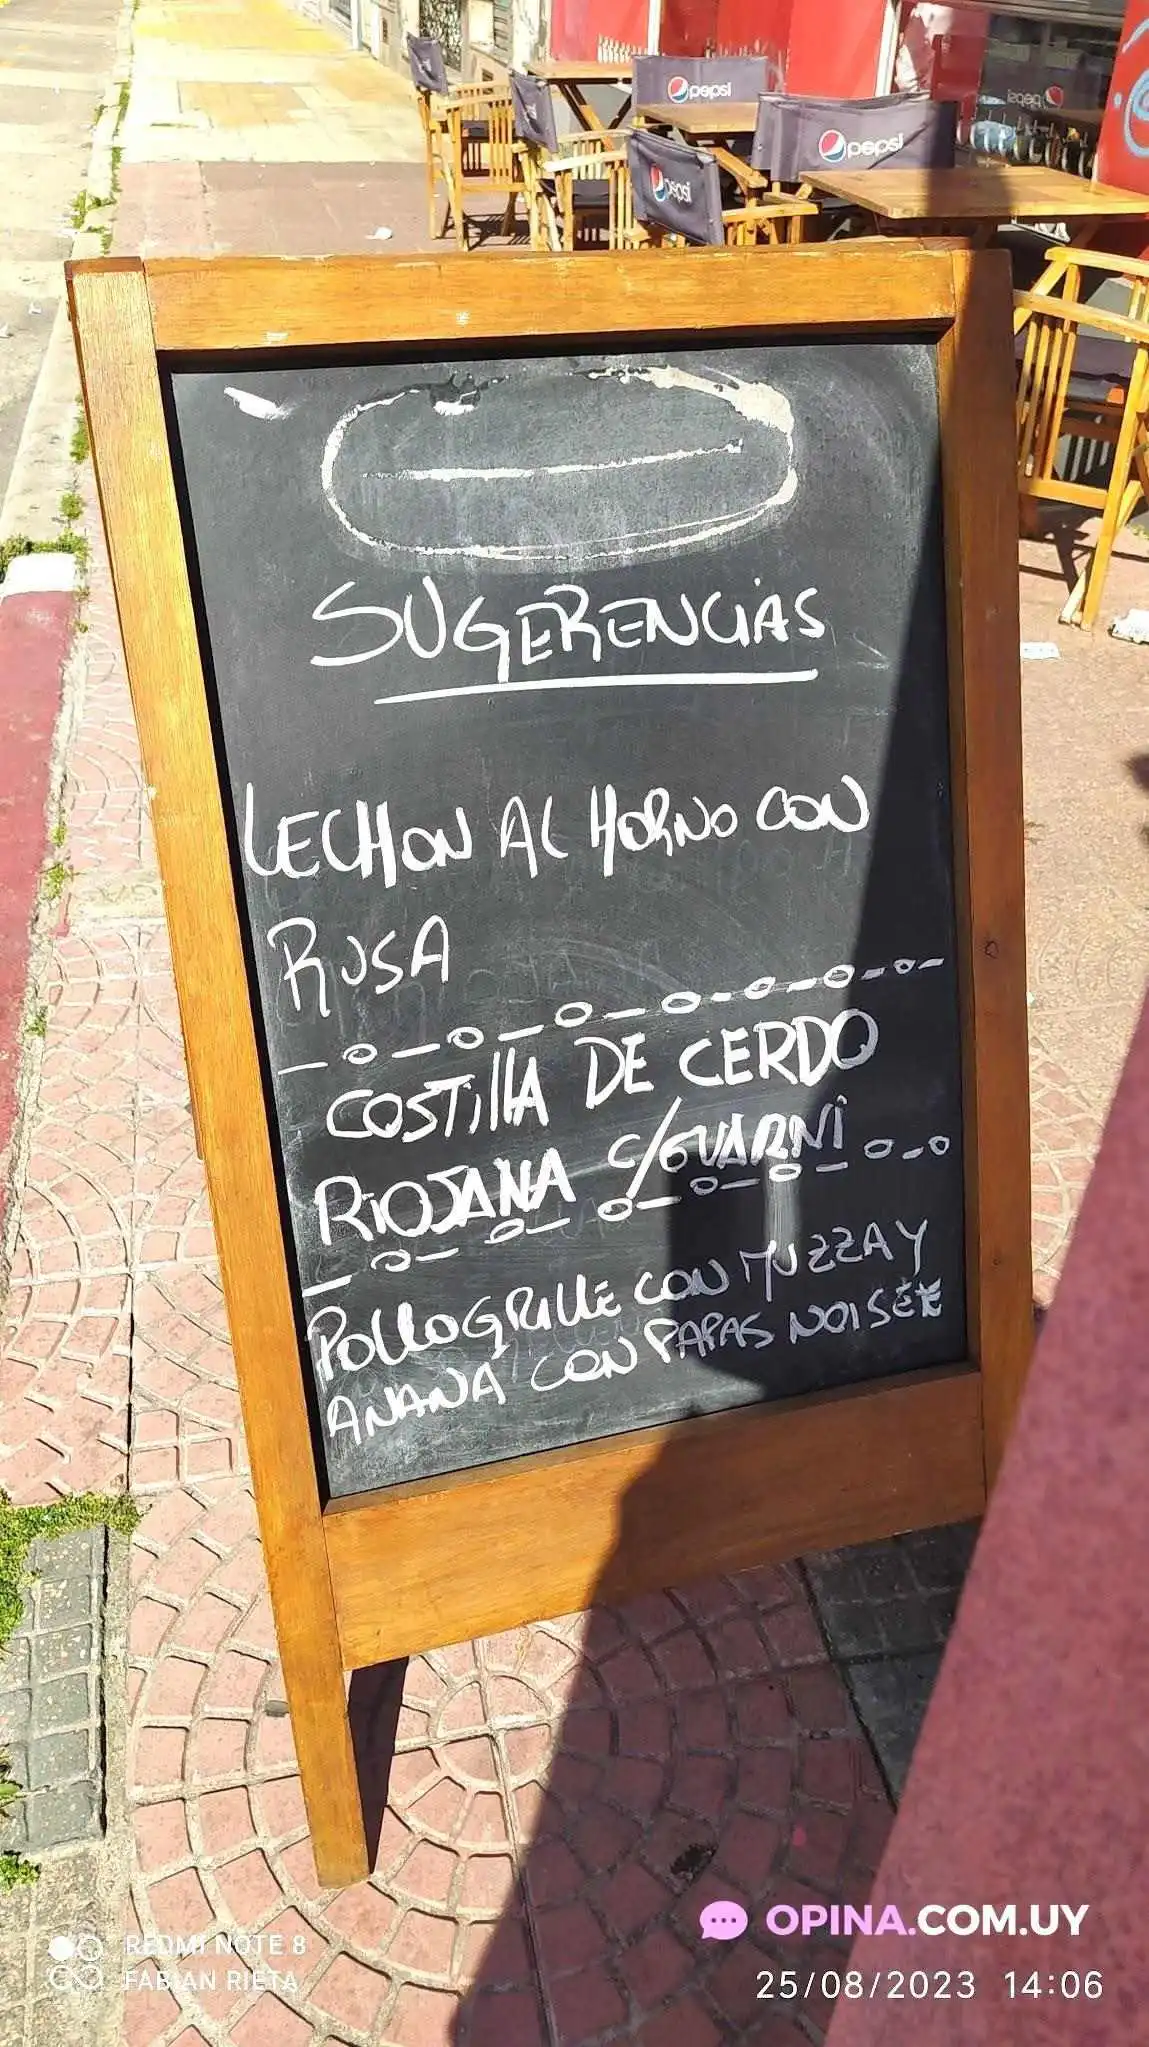 pepsi
pepsi
pepsi
pepsi
SUGERENCIAS
LECHON AL HORNO CON
RUSA
COSTILLA DE CERDO
RIOJANA C/GUARNI
POLLO GRILLE CON MUZZA Y
ANANA CON PAPAS NOISETE
OPINA.COM.UY
REDMI NOTE 8
FABIAN RIETA
25/08/2023 14:06